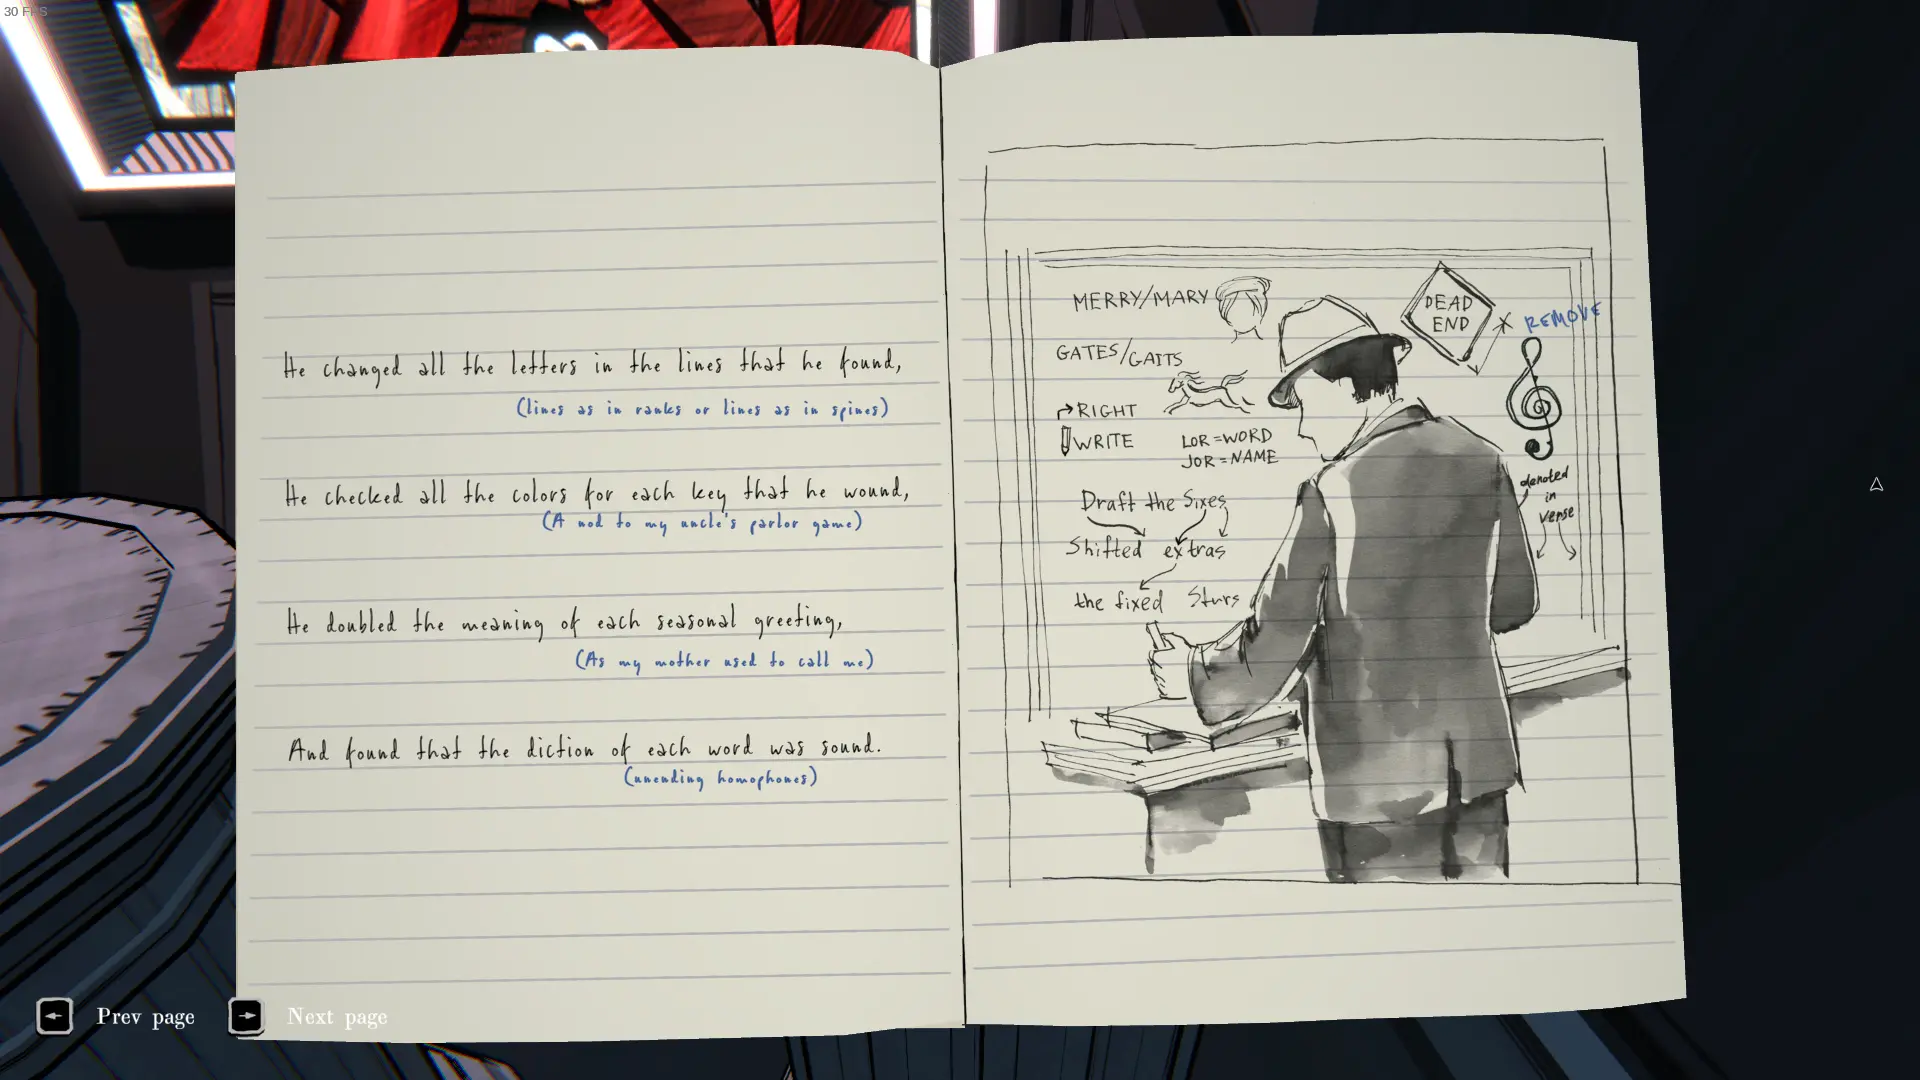 30 FPS
He changed all the letters in the lines that he found,
(lines as in ranks or lines as in spines)
He checked all the colors for each key that he wound,
(A nod to my uncle's parlor game)
He doubled the meaning of each seasonal greeting,
(As my mother used to call me)
And found that the diction of each word was sound.
(unending homophones)
MERRY/MARY
GATES/GAITS
RIGHT
WRITE
LOR=WORD
JOR=NAME
Draft the Sixes
Shifted extras
the fixed Stars
DEAD
END
REMOVE
denoted
in
verse
Prev page
Next page